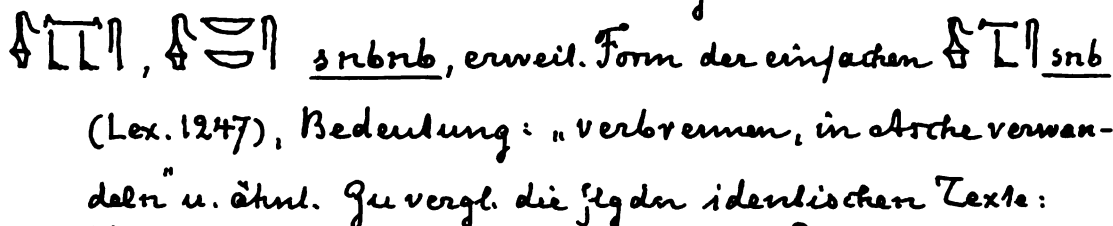 , snbnb, erweit. Form der einfachen snb
(Lex. 1247), Bedeutung: „verbrennen, in Asche verwan-
deln" u. ähnl. Zu vergl. die flgdn identischen Texte: